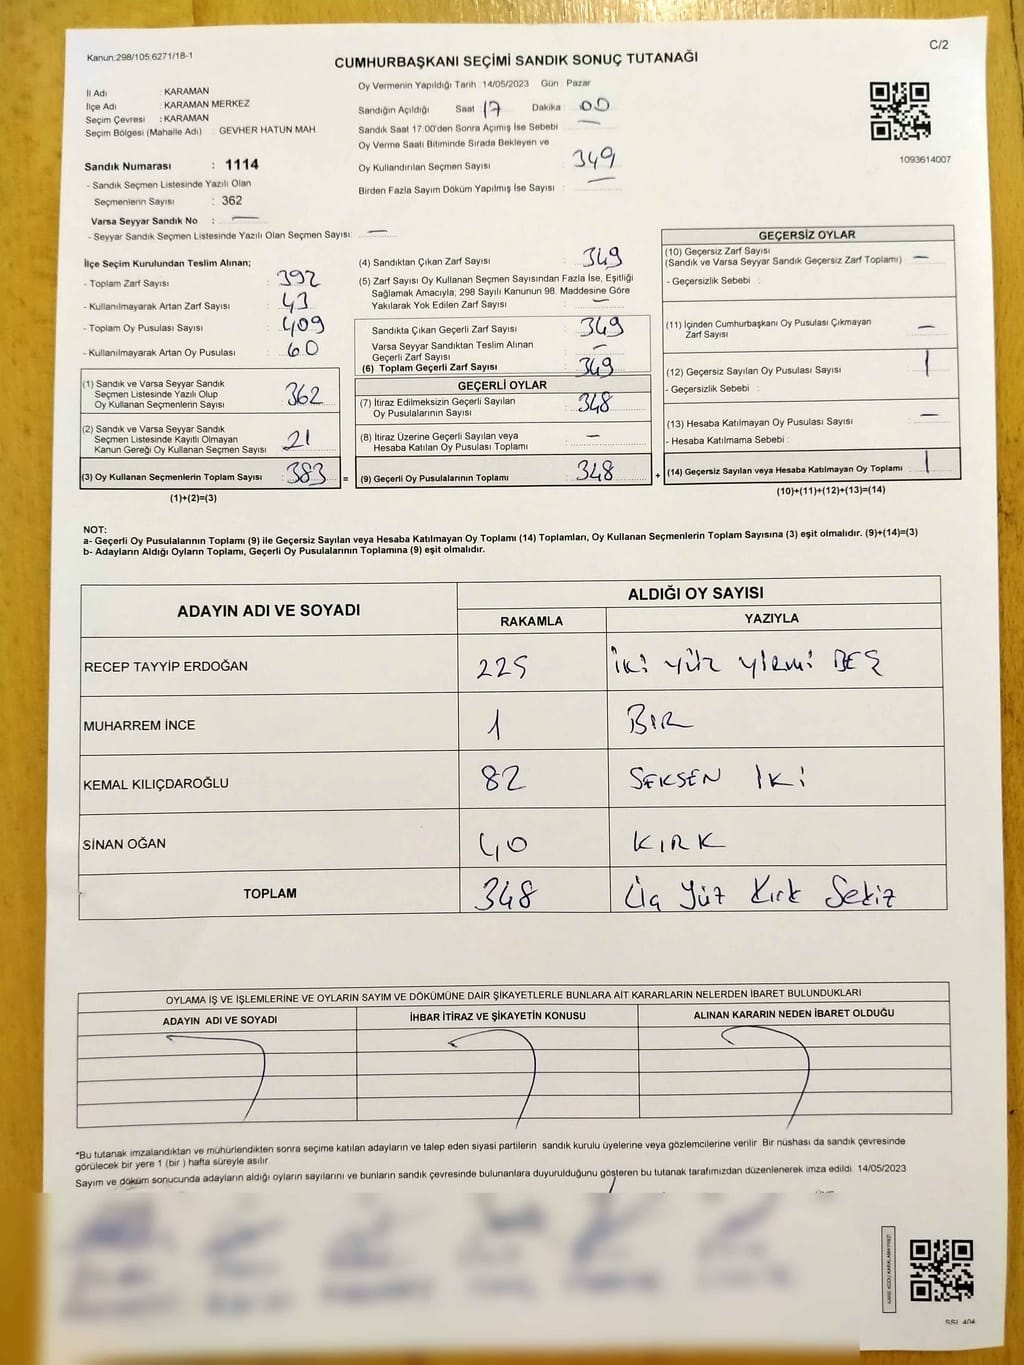 Kanun:298/105;6271/18-1
C/2
CUMHURBAŞKANI SEÇİMİ SANDIK SONUÇ TUTANAĞI
İl Adı : KARAMAN
İlçe Adı : KARAMAN MERKEZ
Seçim Çevresi : KARAMAN
Seçim Bölgesi (Mahalle Adı) : GEVHER HATUN MAH.
Sandık Numarası : 1114
- Sandık Seçmen Listesinde Yazılı Olan
Seçmenlerin Sayısı : 362
Varsa Seyyar Sandık No : —
- Seyyar Sandık Seçmen Listesinde Yazılı Olan Seçmen Sayısı: —
Oy Vermenin Yapıldığı Tarih :14/05/2023 Gün : Pazar
Sandığın Açıldığı Saat 17 Dakika : 00
Sandık Saat 17:00'den Sonra Açımış İse Sebebi : —
Oy Verme Saati Bitiminde Sırada Bekleyen ve
Oy Kullandırılan Seçmen Sayısı : 349
Birden Fazla Sayım Döküm Yapılmış İse Sayısı : —
1093614007
İlçe Seçim Kurulundan Teslim Alınan;
- Toplam Zarf Sayısı : 392
- Kullanılmayarak Artan Zarf Sayısı : 43
- Toplam Oy Pusulası Sayısı : 409
- Kullanılmayarak Artan Oy Pusulası : 60
(1) Sandık ve Varsa Seyyar Sandık
Seçmen Listesinde Yazılı Olup
Oy Kullanan Seçmenlerin Sayısı : 362
(2) Sandık ve Varsa Seyyar Sandık
Seçmen Listesinde Kayıtlı Olmayan
Kanun Gereği Oy Kullanan Seçmen Sayısı : 21
(3) Oy Kullanan Seçmenlerin Toplam Sayısı : 383 =
(1)+(2)=(3)
(4) Sandıktan Çıkan Zarf Sayısı : 349
(5) Zarf Sayısı Oy Kullanan Seçmen Sayısından Fazla İse, Eşitliği
Sağlamak Amacıyla; 298 Sayılı Kanunun 98. Maddesine Göre
Yakılarak Yok Edilen Zarf Sayısı : —
Sandıkta Çıkan Geçerli Zarf Sayısı : 349
Varsa Seyyar Sandıktan Teslim Alınan
Geçerli Zarf Sayısı : —
(6) Toplam Geçerli Zarf Sayısı : 349
GEÇERLİ OYLAR
(7) İtiraz Edilmeksizin Geçerli Sayılan
Oy Pusulalarının Sayısı : 348
(8) İtiraz Üzerine Geçerli Sayılan veya
Hesaba Katılan Oy Pusulası Toplamı : —
(9) Geçerli Oy Pusulalarının Toplamı : 348 +
GEÇERSİZ OYLAR
(10) Geçersiz Zarf Sayısı
(Sandık ve Varsa Seyyar Sandık Geçersiz Zarf Toplamı) : —
- Geçersizlik Sebebi :
(11) İçinden Cumhurbaşkanı Oy Pusulası Çıkmayan
Zarf Sayısı : —
(12) Geçersiz Sayılan Oy Pusulası Sayısı : 1
- Geçersizlik Sebebi :
(13) Hesaba Katılmayan Oy Pusulası Sayısı : —
- Hesaba Katılmama Sebebi :
(14) Geçersiz Sayılan veya Hesaba Katılmayan Oy Toplamı : 1
(10)+(11)+(12)+(13)=(14)
NOT:
a- Geçerli Oy Pusulalarının Toplamı (9) ile Geçersiz Sayılan veya Hesaba Katılmayan Oy Toplamı (14) Toplamları, Oy Kullanan Seçmenlerin Toplam Sayısına (3) eşit olmalıdır. (9)+(14)=(3)
b- Adayların Aldığı Oyların Toplamı, Geçerli Oy Pusulalarının Toplamına (9) eşit olmalıdır.
ADAYIN ADI VE SOYADI
ALDIĞI OY SAYISI
RAKAMLA YAZIYLA
RECEP TAYYİP ERDOĞAN 225 iki yüz yirmi BEŞ
MUHARREM İNCE 1 BIR
KEMAL KILIÇDAROĞLU 82 SEKSEN İKİ
SİNAN OĞAN 40 KIRK
TOPLAM 348 Üç Yüz Kırk Sekiz
OYLAMA İŞ VE İŞLEMLERİNE VE OYLARIN SAYIM VE DÖKÜMÜNE DAİR ŞİKAYETLERLE BUNLARA AİT KARARLARIN NELERDEN İBARET BULUNDUKLARI
ADAYIN ADI VE SOYADI İHBAR İTİRAZ VE ŞİKAYETİN KONUSU ALINAN KARARIN NEDEN İBARET OLDUĞU
*Bu tutanak imzalandıktan ve mühürlendikten sonra seçime katılan adayların ve talep eden siyasi partilerin sandık kurulu üyelerine veya gözlemcilerine verilir. Bir nüshası da sandık çevresinde
görülecek bir yere 1 (bir ) hafta süreyle asılır.
Sayım ve döküm sonucunda adayların aldığı oyların sayılarını ve bunların sandık çevresinde bulunanlara duyurulduğunu gösteren bu tutanak tarafımızdan düzenlenerek imza edildi. 14/05/2023
KARE KODU KARALAMAYINIZ!